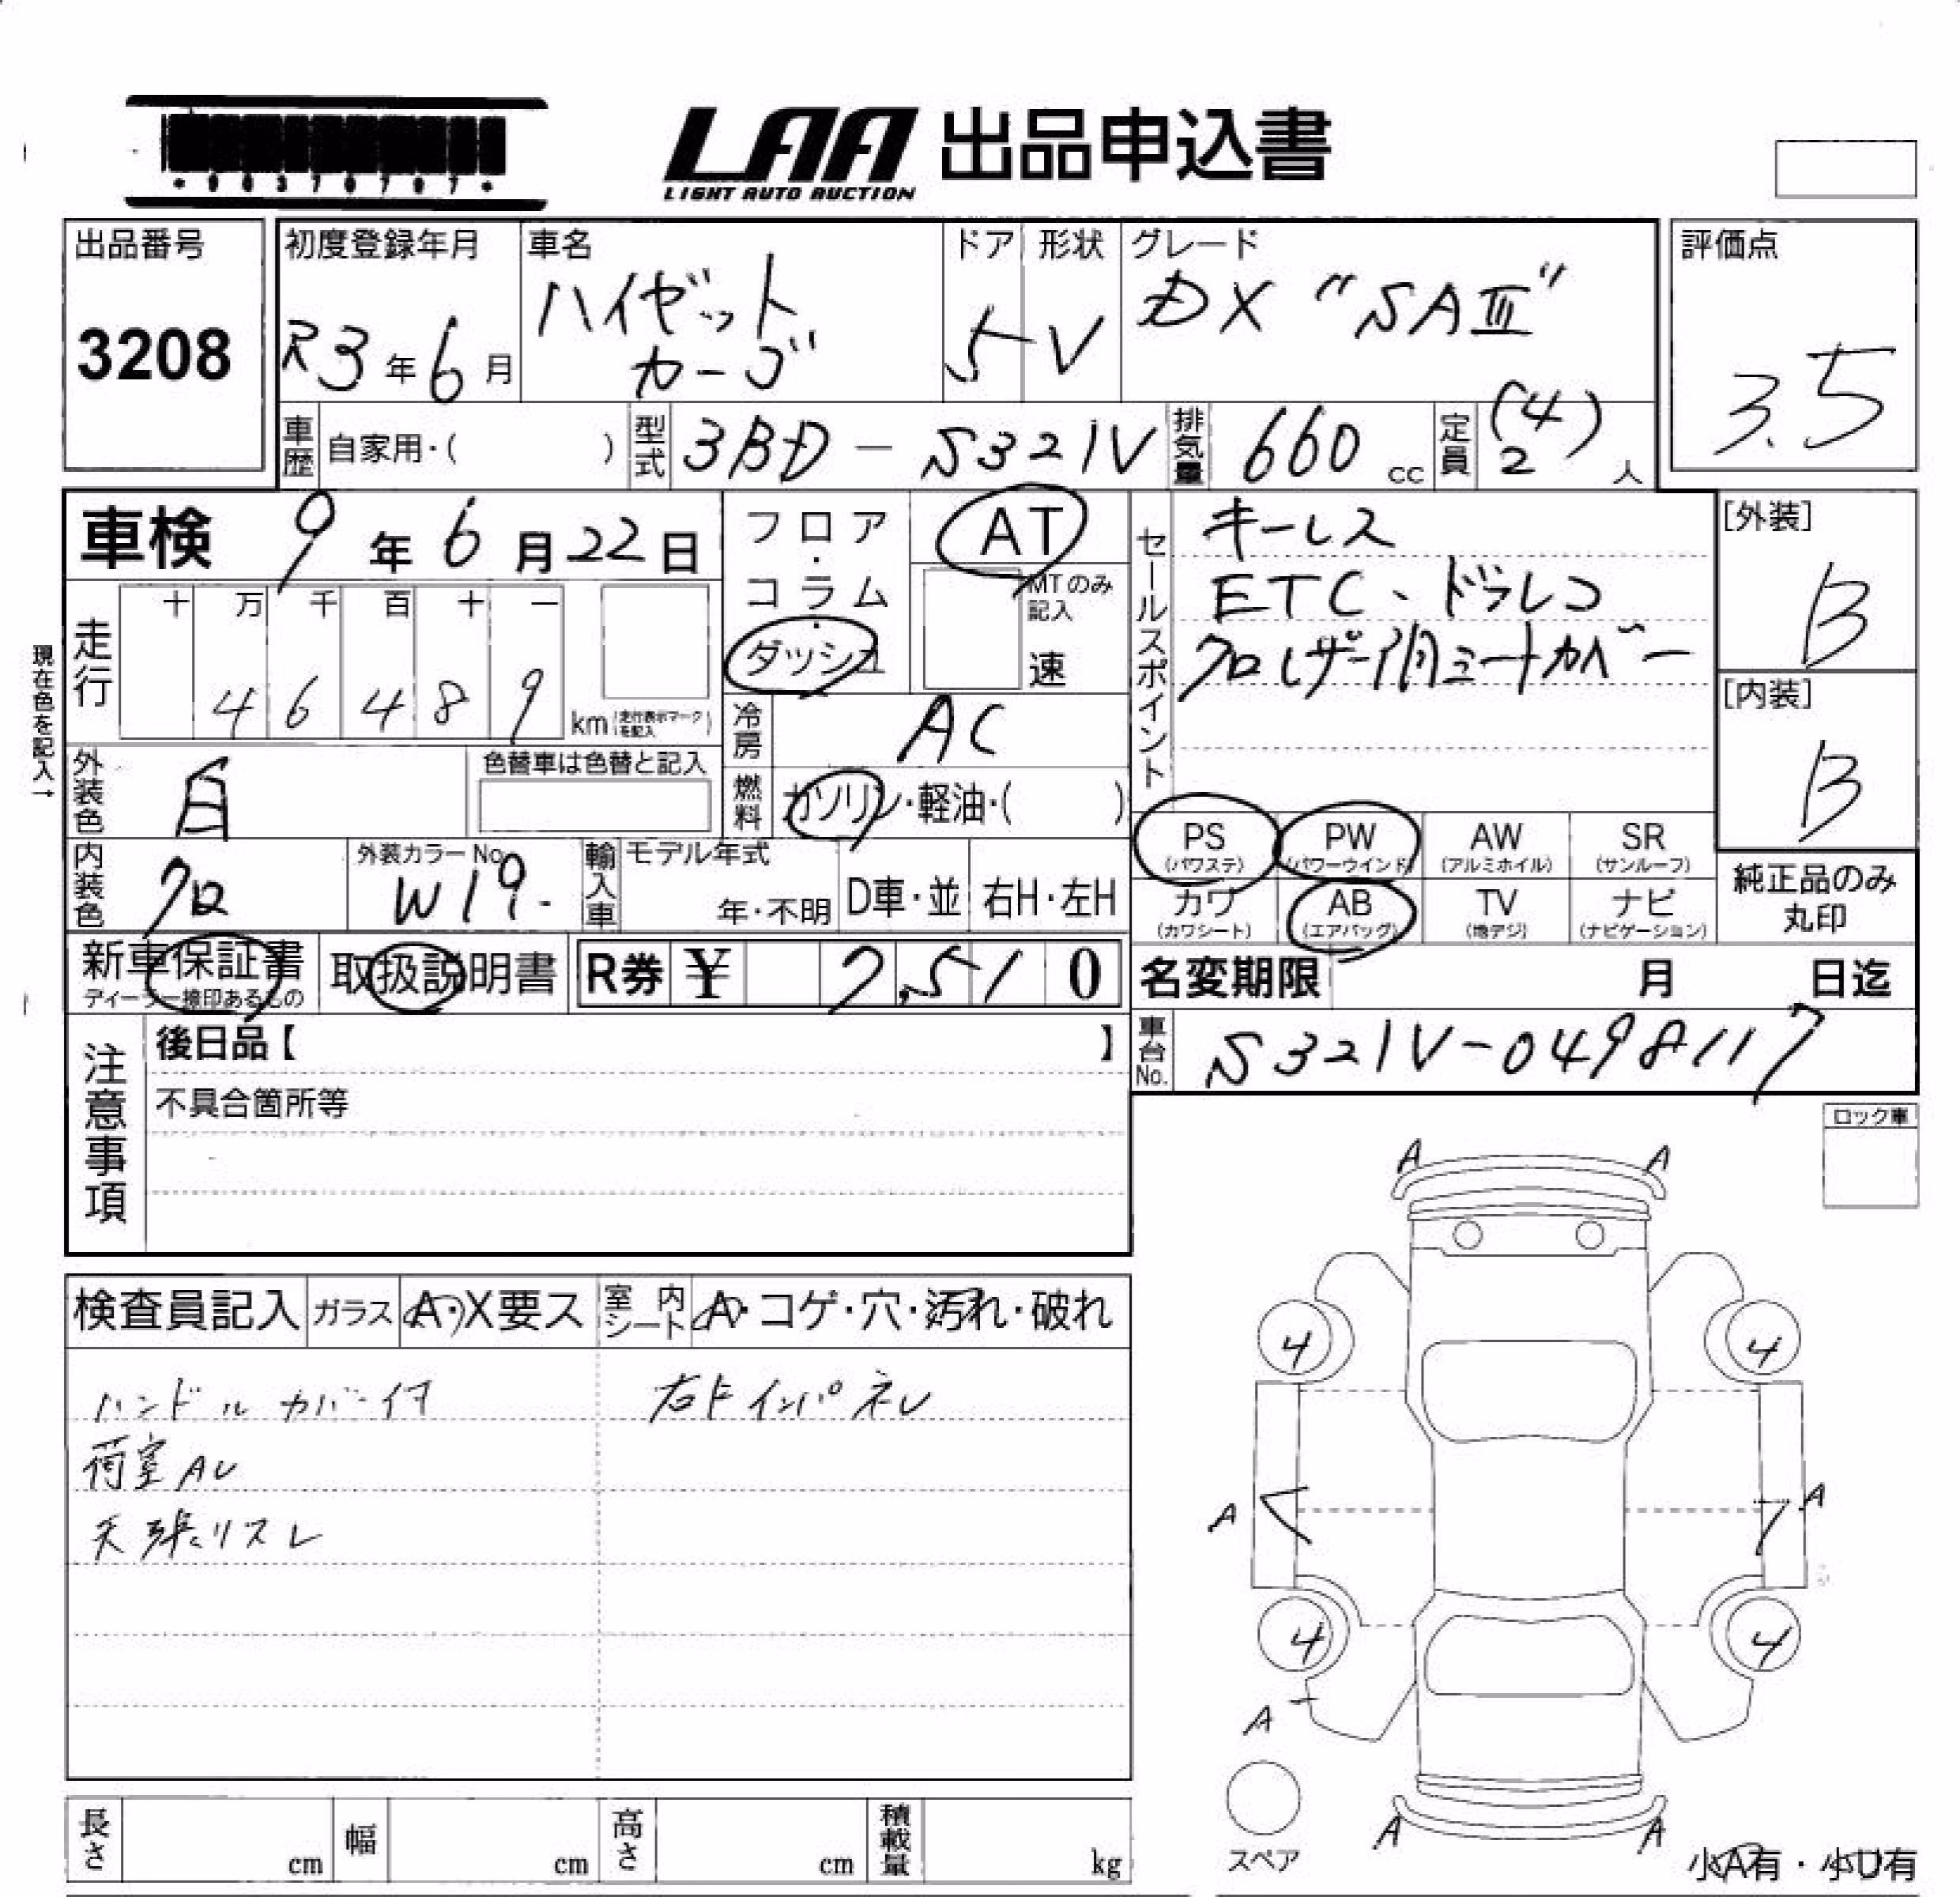 *90370707*
LAA 出品申込書
LIGHT AUTO AUCTION
出品番号
3208
初度登録年月
R3年6月
車名
ハイゼット
カーゴ
ドア
5
形状
V
グレード
DX "SAⅢ"
評価点
3.5
車歴 自家用・( )
型式 3BD-S321V
排気量 660 cc
定員 (4) 2 人
車検 9年6月22日
フロア・コラム・ダッシュ
AT
MTのみ記入
速
セールスポイント
キーレス
ETC、ドラレコ
クロレザー調シートカバー
[外装]
B
[内装]
B
走行
十 万 千 百 十 一
4 6 4 8 9 km (走行表示マークを記入)
現在色を記入→
冷房 AC
外装色 白
色替車は色替と記入
燃料 ガソリン・軽油・( )
内装色 クロ
外装カラーNo. W19.
輸入車
モデル年式
年・不明
D車・並
右H・左H
PS (パワステ)
PW (パワーウインド)
AW (アルミホイル)
SR (サンルーフ)
カワ (カワシート)
AB (エアバッグ)
TV (地デジ)
ナビ (ナビゲーション)
純正品のみ
丸印
新車保証書
ディーラー捺印あるもの
取扱説明書
R券 ¥ 7,510
名変期限 月 日迄
車台No. S321V-0498117
注意事項
後日品【 】
不具合箇所等
ロック車
検査員記入
ガラス A・X要ス
室内シート A・コゲ・穴・汚れ・破れ
ハンドルカバー付
右下インパネレ
荷室AU
天張リスレ
A A
4 4
A A
4 4
A
A A
スペア
小A有・小U有
長さ cm
幅 cm
高さ cm
積載量 kg